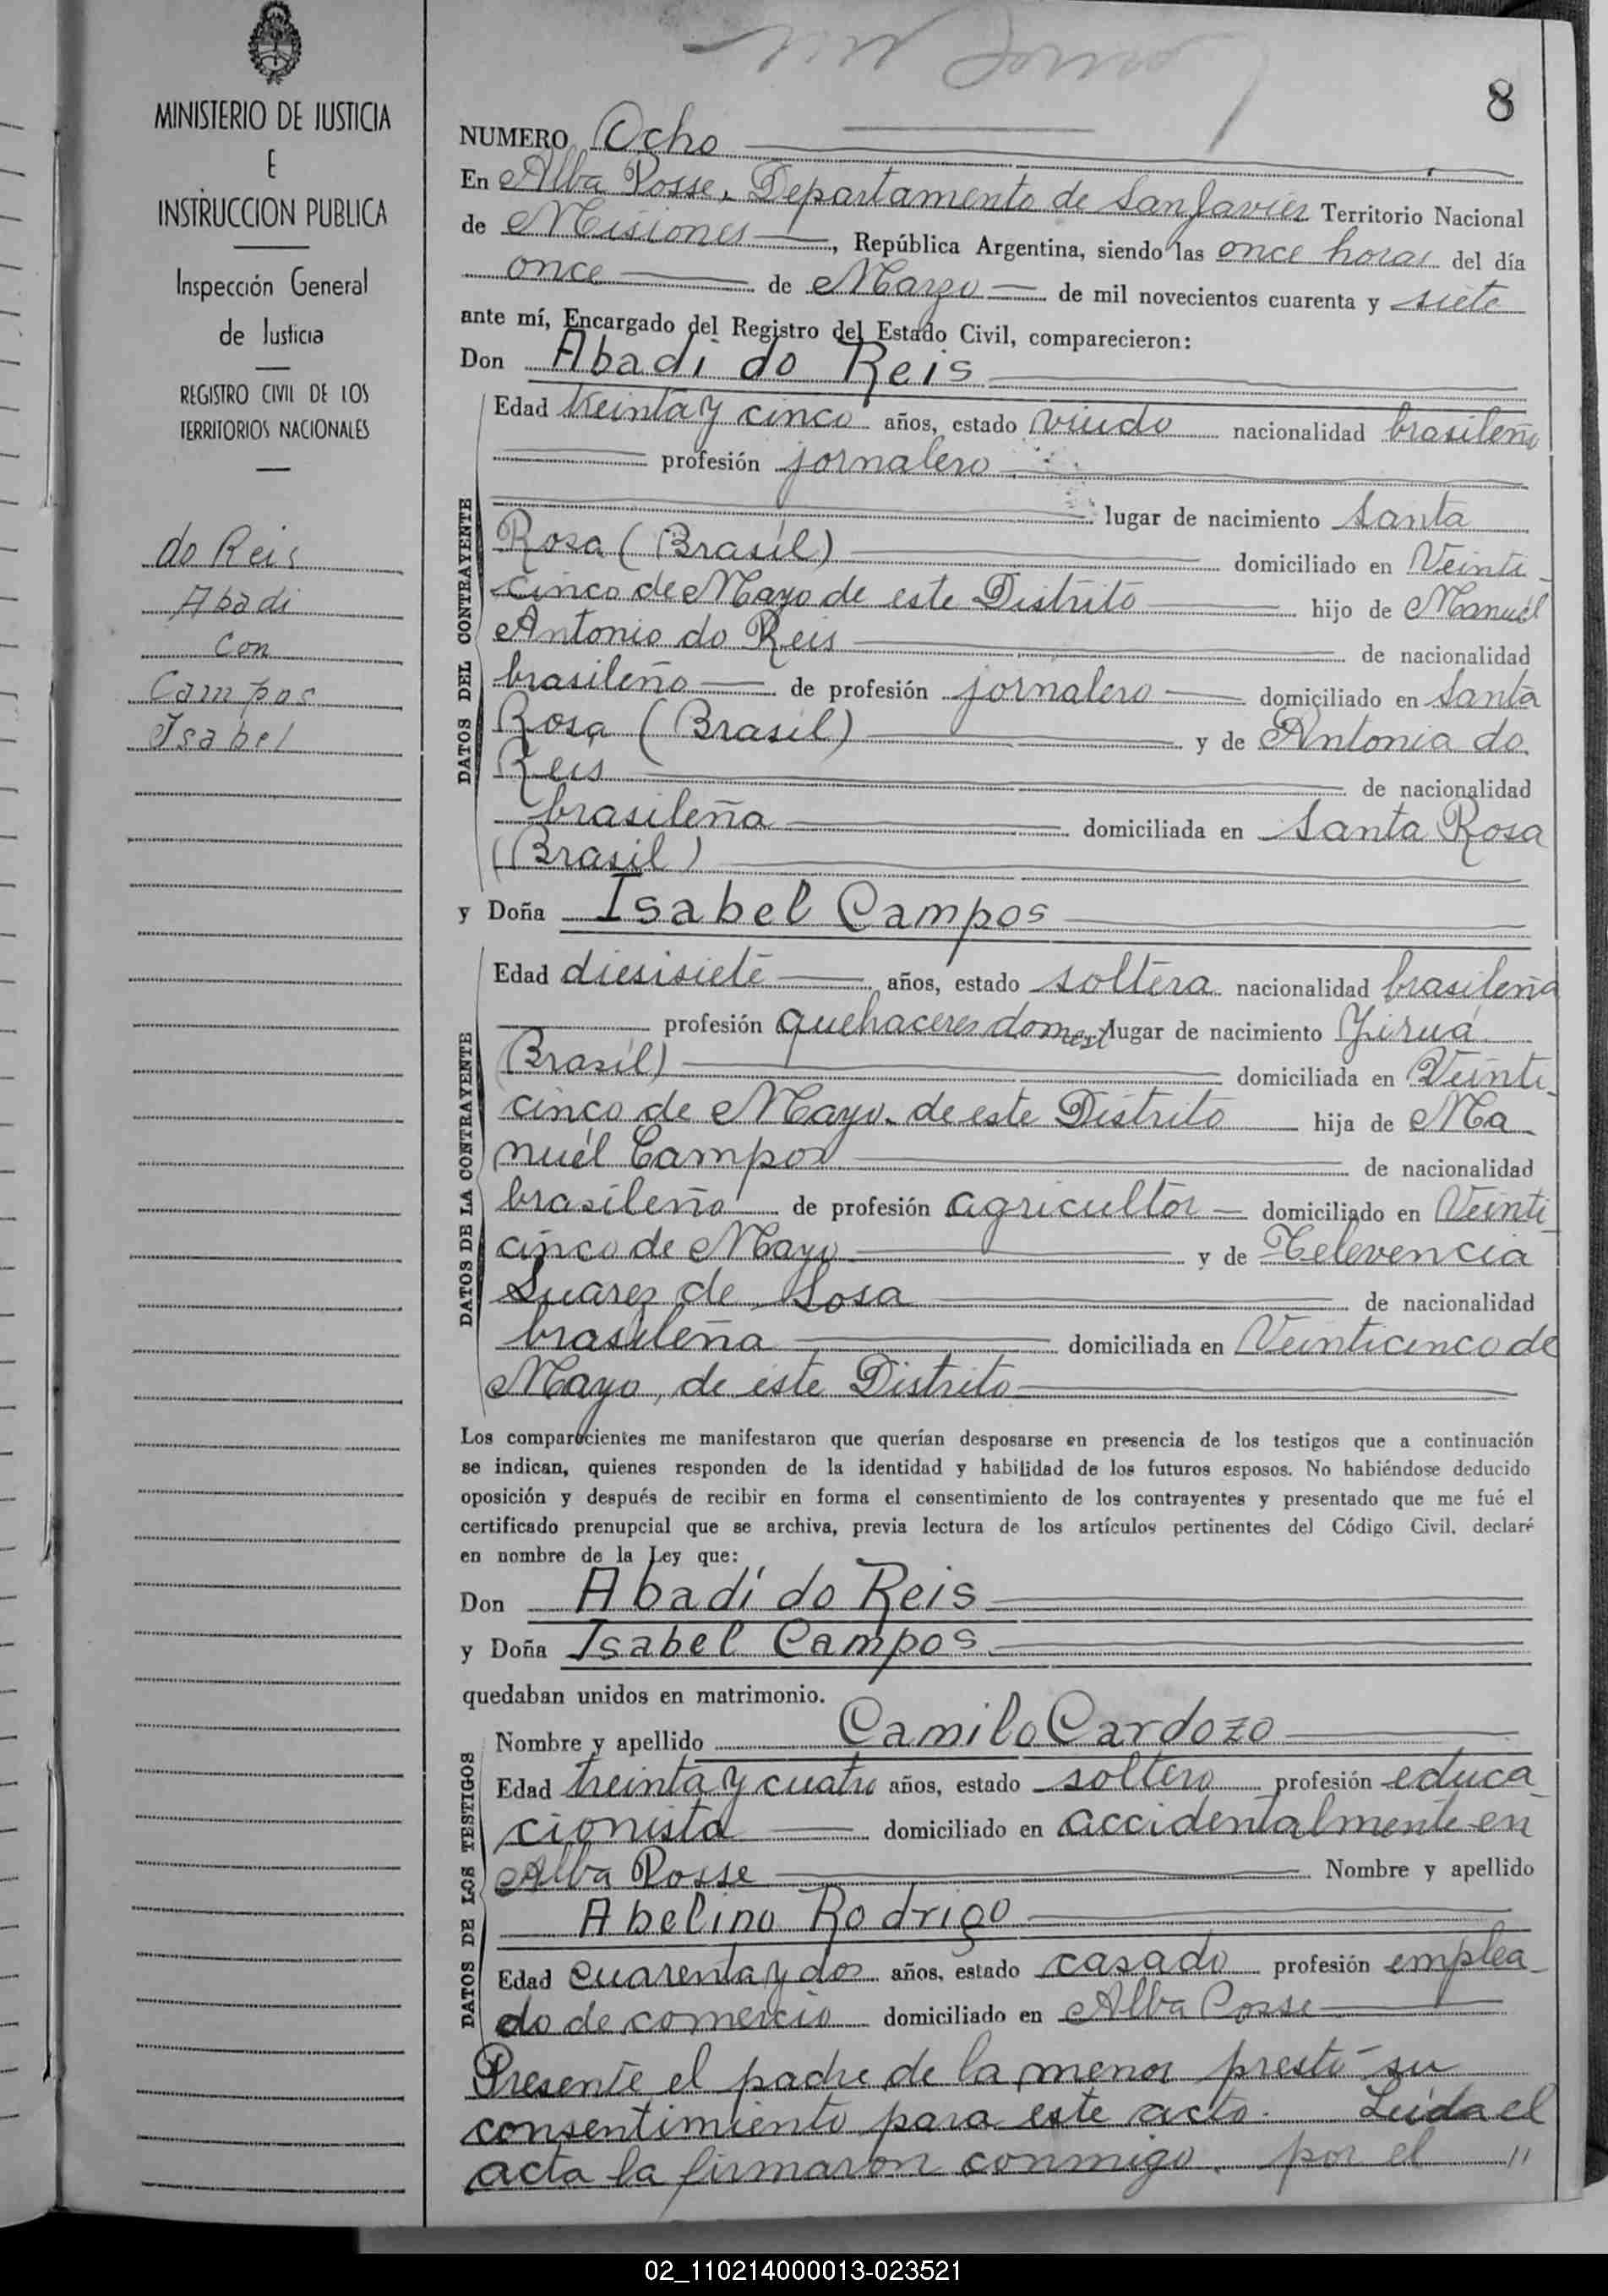 8
MINISTERIO DE JUSTICIA
E
INSTRUCCION PUBLICA
Inspección General
de Justicia
REGISTRO CIVIL DE LOS
TERRITORIOS NACIONALES
do Reis
Abadi
Con
Campos
Isabel
NUMERO Ocho
En Alba Posse, Departamento de San Javier Territorio Nacional
de Misiones, República Argentina, siendo las once horas del día
once de Marzo de mil novecientos cuarenta y siete
ante mí, Encargado del Registro del Estado Civil, comparecieron:
Don Abadi do Reis
DATOS DEL CONTRAYENTE
Edad treinta y cinco años, estado viudo nacionalidad brasileño
profesión jornalero
lugar de nacimiento Santa
Rosa (Brasil) domiciliado en Veinti
cinco de Mayo de este Distrito hijo de Manuel
Antonio do Reis de nacionalidad
brasileño de profesión jornalero domiciliado en Santa
Rosa (Brasil) y de Antonia do
Reis de nacionalidad
brasileña domiciliada en Santa Rosa
(Brasil)
y Doña Isabel Campos
DATOS DE LA CONTRAYENTE
Edad diesisiete años, estado soltera nacionalidad brasileña
profesión quehaceres domest lugar de nacimiento Jiruá
(Brasil) domiciliada en Veinti
cinco de Mayo de este Distrito hija de Ma
nuél Campos de nacionalidad
brasileño de profesión agricultor domiciliado en Veinti
cinco de Mayo y de
Suarez de Sosa de nacionalidad
brasileña domiciliada en Veinticinco de
Mayo, de este Distrito
Los comparecientes me manifestaron que querían desposarse en presencia de los testigos que a continuación
se indican, quienes responden de la identidad y habilidad de los futuros esposos. No habiéndose deducido
oposición y después de recibir en forma el consentimiento de los contrayentes y presentado que me fué el
certificado prenupcial que se archiva, previa lectura de los artículos pertinentes del Código Civil, declaré
en nombre de la Ley que:
Don Abadí do Reis
y Doña Isabel Campos
quedaban unidos en matrimonio.
DATOS DE LOS TESTIGOS
Nombre y apellido Camilo Cardozo
Edad treinta y cuatro años, estado soltero profesión educa
cionista domiciliado en accidentalmente en
Alba Posse Nombre y apellido
Abelino Rodrigo
Edad cuarenta y dos años, estado casado profesión emplea-
do de comercio domiciliado en Alba Posse
Presente el padre de la menor prestó su
consentimiento para este acto. Leída el
acta la firmaron conmigo. por el "
02_110214000013-023521